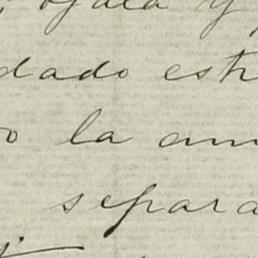 ojalá y
dado est
o la am
separa